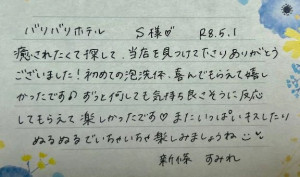 バリバリホテル S様♡ R8.5.1
癒されたくて探して、当店を見つけて下さりありがとう
ございました！初めての泡洗体、喜んでもらえて嬉し
かったです♪ずっと何しても気持ち良さそうに反応
してもらえて楽しかったです♡またいっぱいキスしたり
ぬるぬるでいちゃいちゃ楽しみましょうね
新條 すみれ